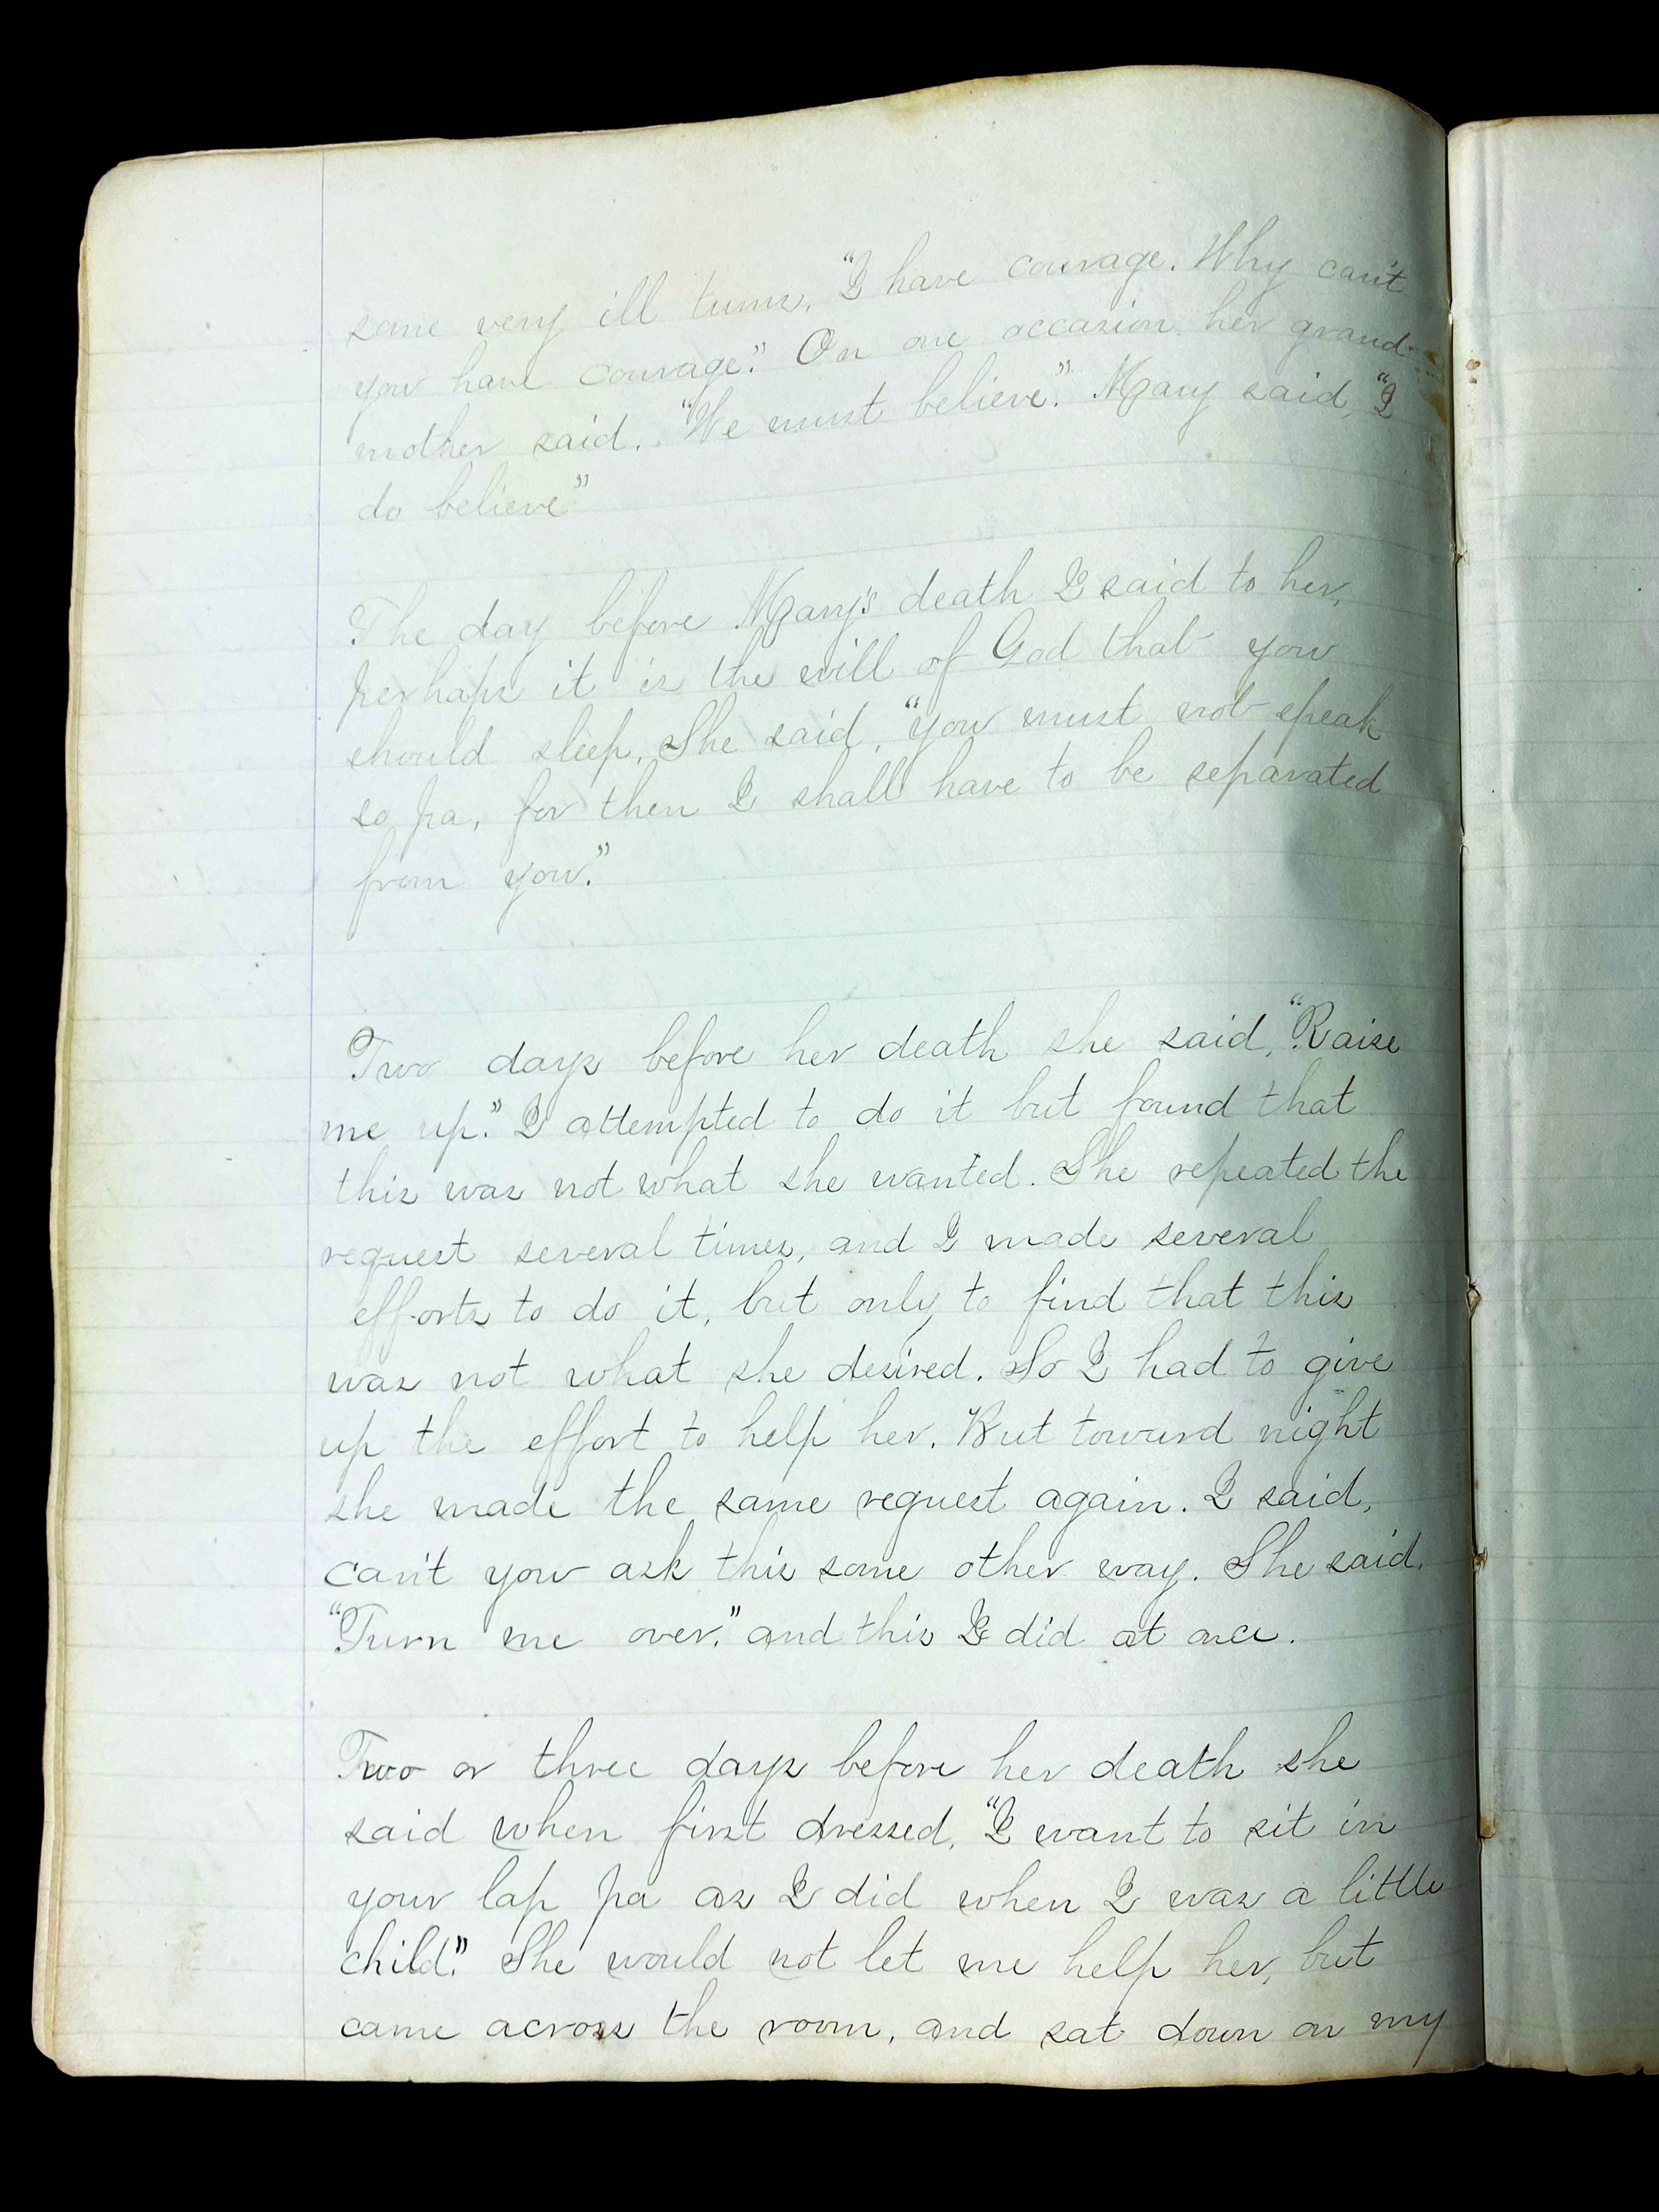 some very ill turns, "I have courage. Why can't
you have courage." On one occasion her grand-
mother said. "We must believe". Mary said, "I
do believe"
The day before Mary's death I said to her,
perhaps it is the will of God that you
should sleep. She said, "you must not speak
so pa, for then I shall have to be separated
from you."
Two days before her death she said, "Raise
me up." I attempted to do it but found that
this was not what she wanted. She repeated the
request several times, and I made several
efforts to do it, but only to find that this
was not what she desired. So I had to give
up the effort to help her. But toward night
she made the same request again. I said,
can't you ask this some other way. She said.
"Turn me over." and this I did at once.
Two or three days before her death she
said when first dressed, "I want to sit in
your lap pa as I did when I was a little
child." She would not let me help her, but
came across the room, and sat down on my